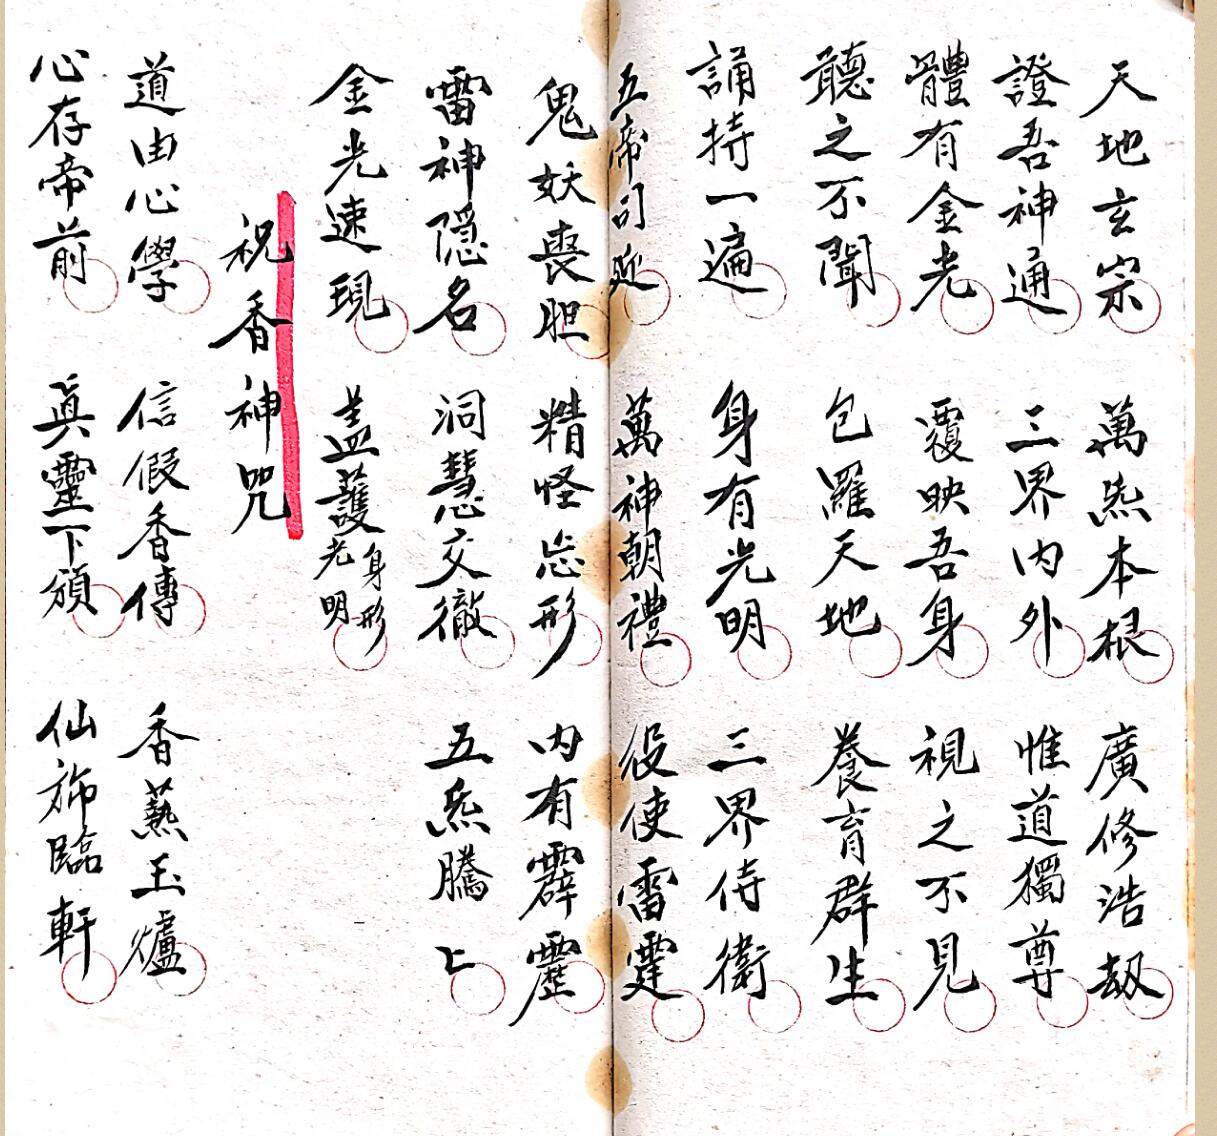 天地玄宗 萬炁本根 廣修浩刼
證吾神通 三界内外 惟道獨尊
體有金光 覆映吾身 視之不見
聽之不聞 包羅天地 養育群生
誦持一遍 身有光明 三界侍衛
五帝司迎 萬神朝禮 役使雷霆
鬼妖喪胆 精怪忘形 内有霹靂
雷神隱名 洞慧交徹 五炁騰〻
金光速現 盖護身形光明
祝香神咒
道由心學 信假香傳 香爇玉爐
心存帝前 眞靈下頒 仙斾臨軒